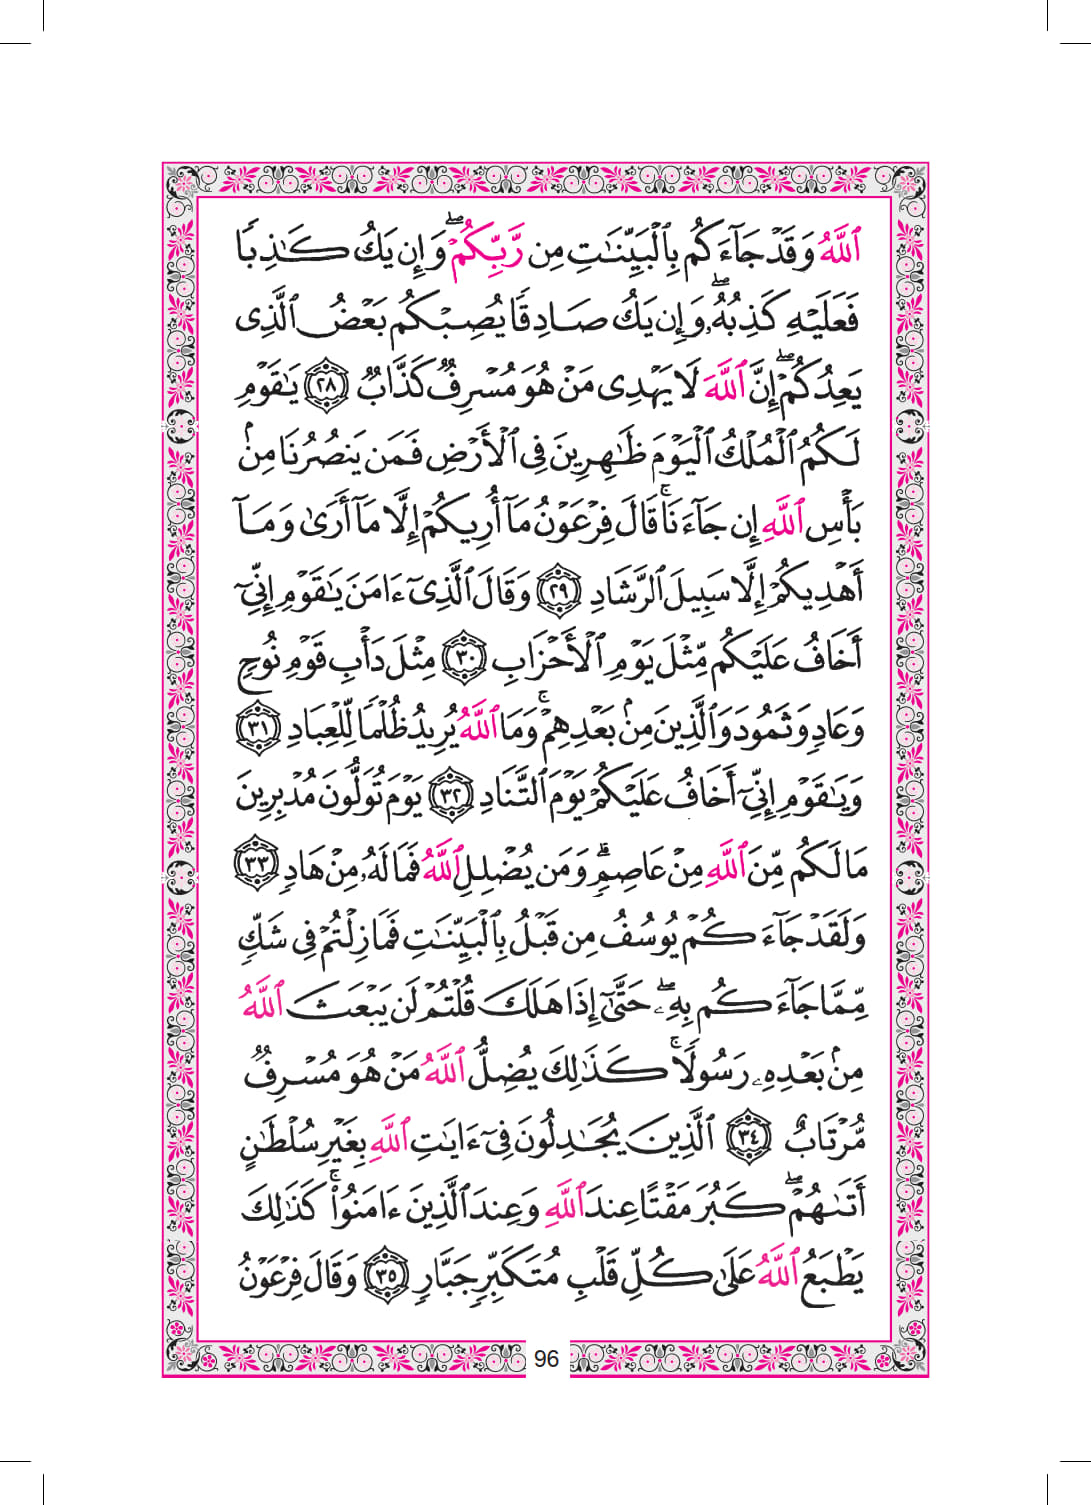 ٱللَّهُ وَقَدْ جَآءَكُم بِٱلْبَيِّنَٰتِ مِن رَّبِّكُمْ ۖ وَإِن يَكُ كَٰذِبًا
فَعَلَيْهِ كَذِبُهُۥ ۖ وَإِن يَكُ صَادِقًا يُصِبْكُم بَعْضُ ٱلَّذِى
يَعِدُكُمْ ۖ إِنَّ ٱللَّهَ لَا يَهْدِى مَنْ هُوَ مُسْرِفٌ كَذَّابٌ ﴿٢٨﴾ يَٰقَوْمِ
لَكُمُ ٱلْمُلْكُ ٱلْيَوْمَ ظَٰهِرِينَ فِى ٱلْأَرْضِ فَمَن يَنصُرُنَا مِنۢ
بَأْسِ ٱللَّهِ إِن جَآءَنَا ۚ قَالَ فِرْعَوْنُ مَآ أُرِيكُمْ إِلَّا مَآ أَرَىٰ وَمَآ
أَهْدِيكُمْ إِلَّا سَبِيلَ ٱلرَّشَادِ ﴿٢٩﴾ وَقَالَ ٱلَّذِىٓ ءَامَنَ يَٰقَوْمِ إِنِّىٓ
أَخَافُ عَلَيْكُم مِّثْلَ يَوْمِ ٱلْأَحْزَابِ ﴿٣٠﴾ مِثْلَ دَأْبِ قَوْمِ نُوحٍ
وَعَادٍ وَثَمُودَ وَٱلَّذِينَ مِنۢ بَعْدِهِمْ ۚ وَمَا ٱللَّهُ يُرِيدُ ظُلْمًا لِّلْعِبَادِ ﴿٣١﴾
وَيَٰقَوْمِ إِنِّىٓ أَخَافُ عَلَيْكُمْ يَوْمَ ٱلتَّنَادِ ﴿٣٢﴾ يَوْمَ تُوَلُّونَ مُدْبِرِينَ
مَا لَكُم مِّنَ ٱللَّهِ مِنْ عَاصِمٍ ۗ وَمَن يُضْلِلِ ٱللَّهُ فَمَا لَهُۥ مِنْ هَادٍ ﴿٣٣﴾
وَلَقَدْ جَآءَكُمْ يُوسُفُ مِن قَبْلُ بِٱلْبَيِّنَٰتِ فَمَا زِلْتُمْ فِى شَكٍّ
مِّمَّا جَآءَكُم بِهِۦ ۖ حَتَّىٰٓ إِذَا هَلَكَ قُلْتُمْ لَن يَبْعَثَ ٱللَّهُ
مِنۢ بَعْدِهِۦ رَسُولًا ۚ كَذَٰلِكَ يُضِلُّ ٱللَّهُ مَنْ هُوَ مُسْرِفٌ
مُّرْتَابٌ ﴿٣٤﴾ ٱلَّذِينَ يُجَٰدِلُونَ فِىٓ ءَايَٰتِ ٱللَّهِ بِغَيْرِ سُلْطَٰنٍ
أَتَىٰهُمْ ۖ كَبُرَ مَقْتًا عِندَ ٱللَّهِ وَعِندَ ٱلَّذِينَ ءَامَنُوا۟ ۚ كَذَٰلِكَ
يَطْبَعُ ٱللَّهُ عَلَىٰ كُلِّ قَلْبِ مُتَكَبِّرٍ جَبَّارٍ ﴿٣٥﴾ وَقَالَ فِرْعَوْنُ
96